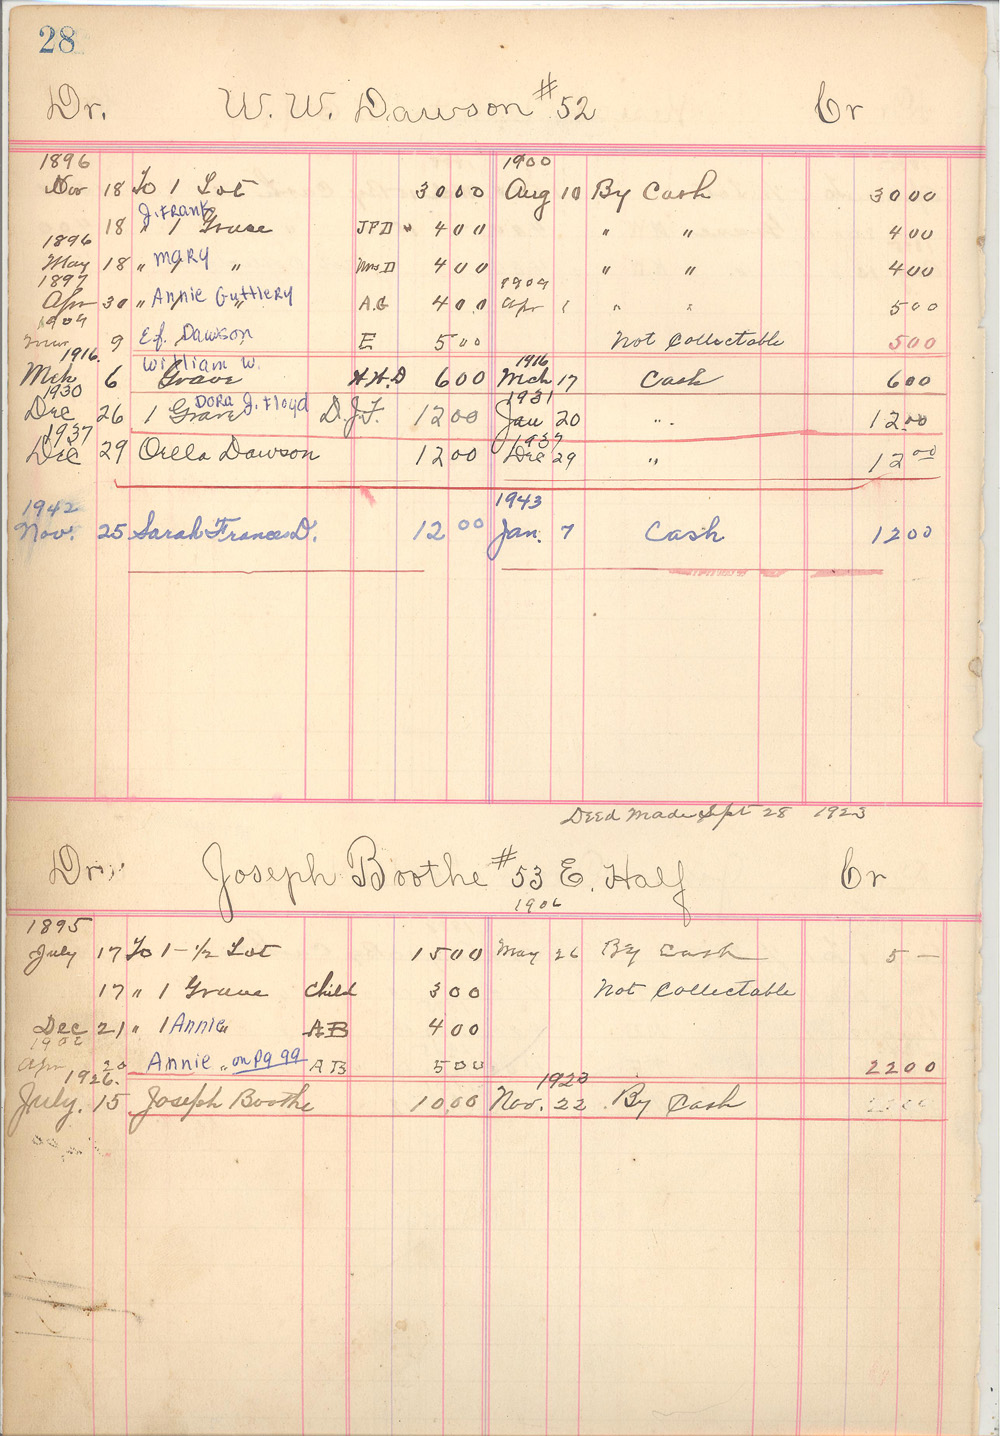 28
Dr. W. W. Dawson #52 Cr
1896 1900
Nov 18 To 1 Lot 30 00 Aug 10 By Cash 30 00
J. Frank
18 " 1 Grave JFD 4 00 " " 4 00
1896
May 18 " Mary " Mrs D 4 00 " " 4 00
1897 1909
Apr 30 " Annie Guttlery " A.G 4 00 Apr " " 5 00
1909
Mar 9 Ef. Dawson E 5 00 Not Collectable 5 00
1916. William W. 1916
Mch 6 Grave W.W.D 6 00 Mch 17 Cash 6 00
1930 Dora J. Floyd 1931
Dec 26 1 Grave D.J.F. 12 00 Jan 20 " 12 00
1937 1937
Dec 29 Orlla Dawson 12 00 Dec 29 " 12 00
1942 1943
Nov. 25 Sarah Frances D. 12 00 Jan. 7 Cash 12 00
Deed Made Spt 28 1923
Dr. Joseph Boothe #53 E. Half Cr
1895 1906
July 17 To 1-1/2 Lot 15 00 May 26 By Cash 5 —
17 " 1 Grave Child 3 00 Not Collectable
Dec 21 " 1 Annie AB 4 00
1906
Apr 20 Annie " on pg 99 AB 5 00 22 00
1926. 1923
July. 15 Joseph Boothe 10 00 Nov. 22 By Cash